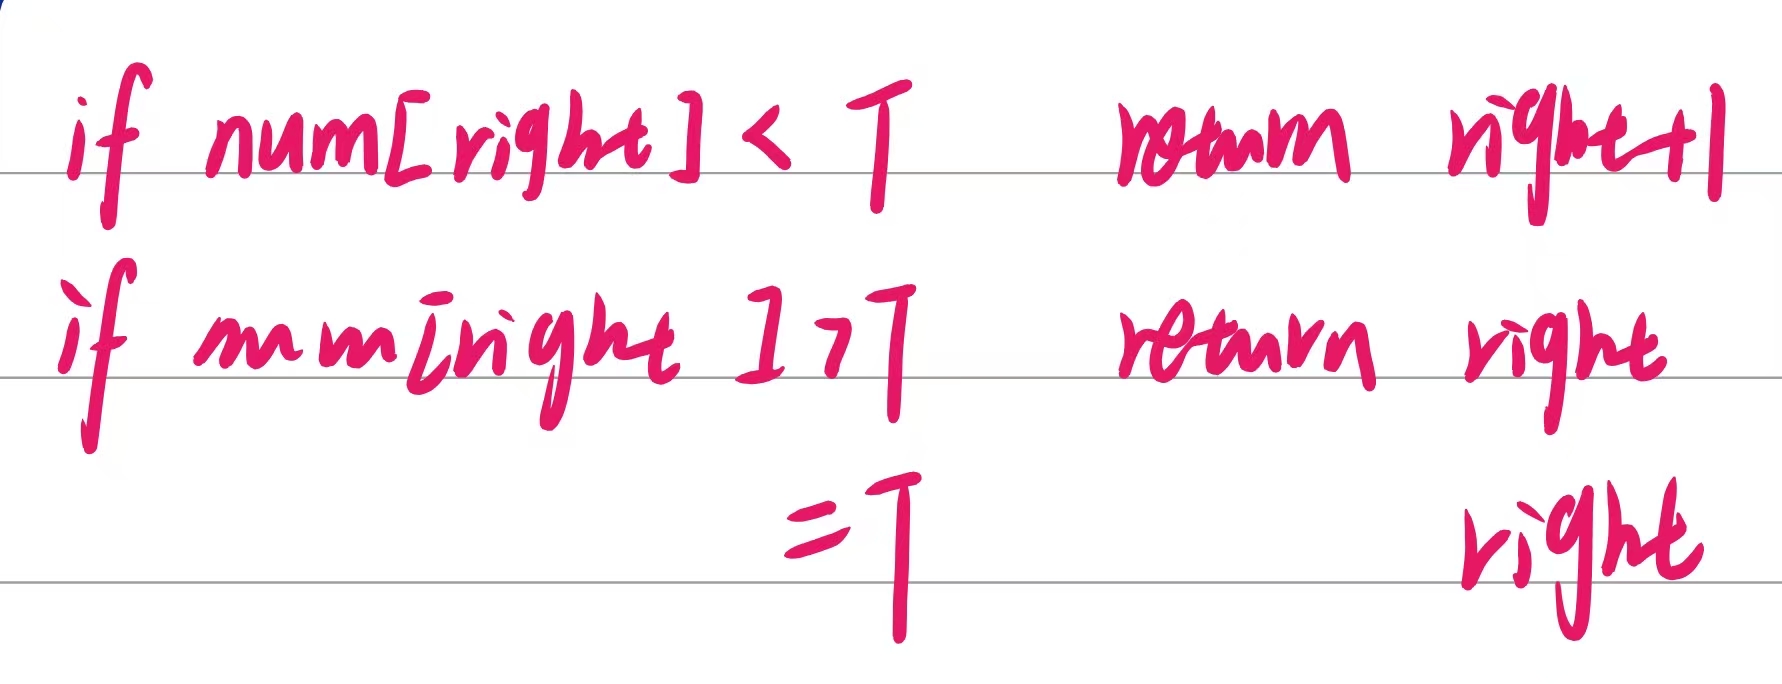 if num[right] < T return right+1
if num[right] > T return right
= T right